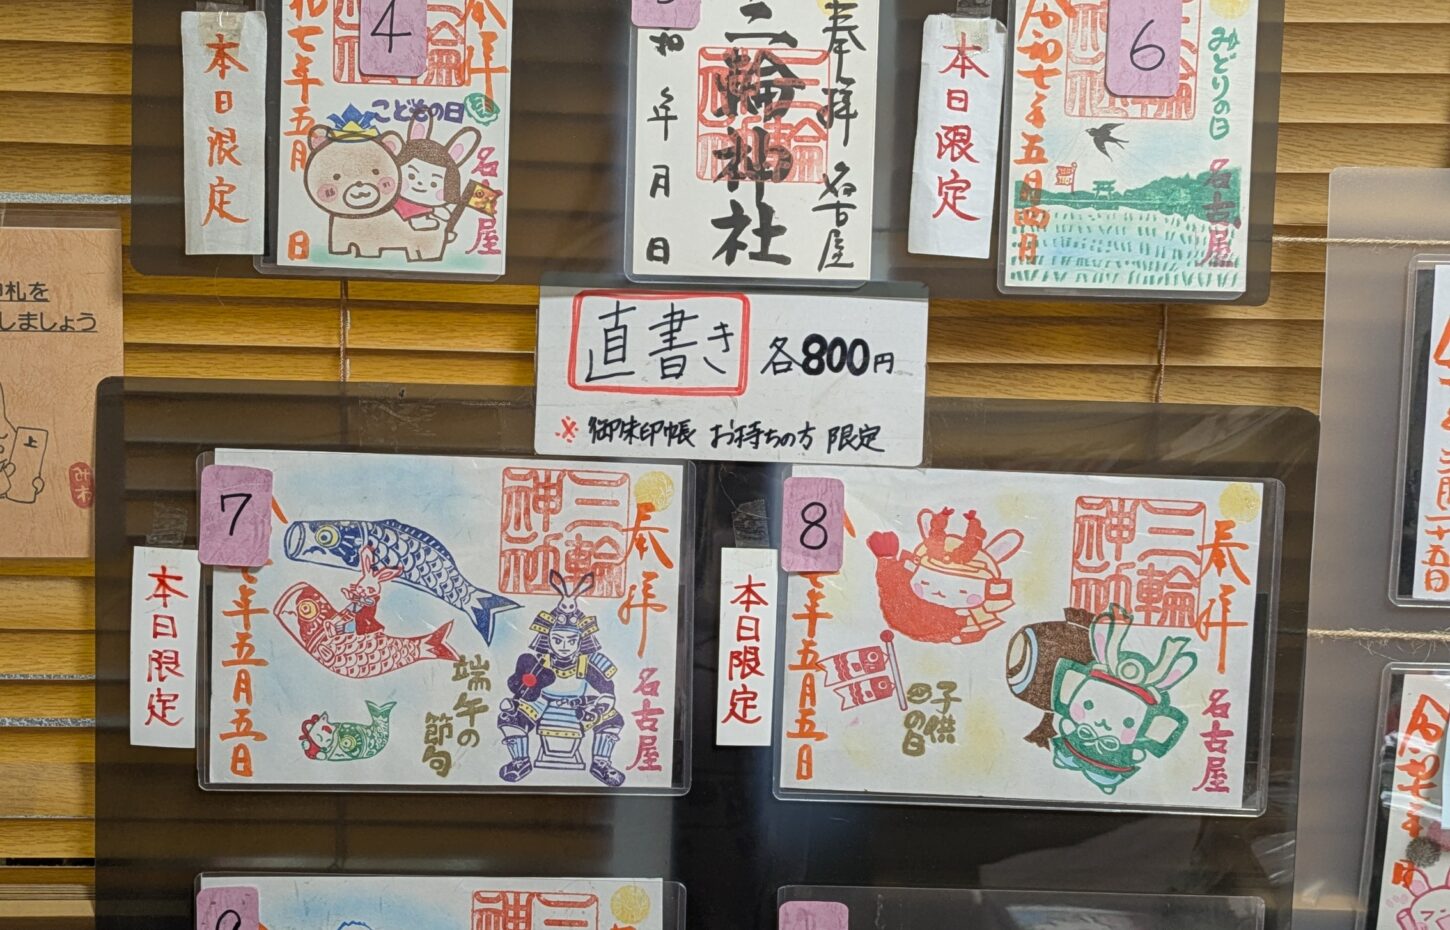 4
奉拝
七年五月
日
こどもの日
名古屋
本日限定
奉拝
三輪神社
名古屋
和
年
月
日
本日限定
6
みどりの日
令和七年五月四日
名古屋
札を
しましょう
上
直書き 各800円
※御朱印帳 お持ちの方 限定
7
本日限定
奉拝
三輪神社
七年五月五日
端午の節句
名古屋
8
本日限定
奉拝
三輪神社
七年五月五日
子供の日
名古屋